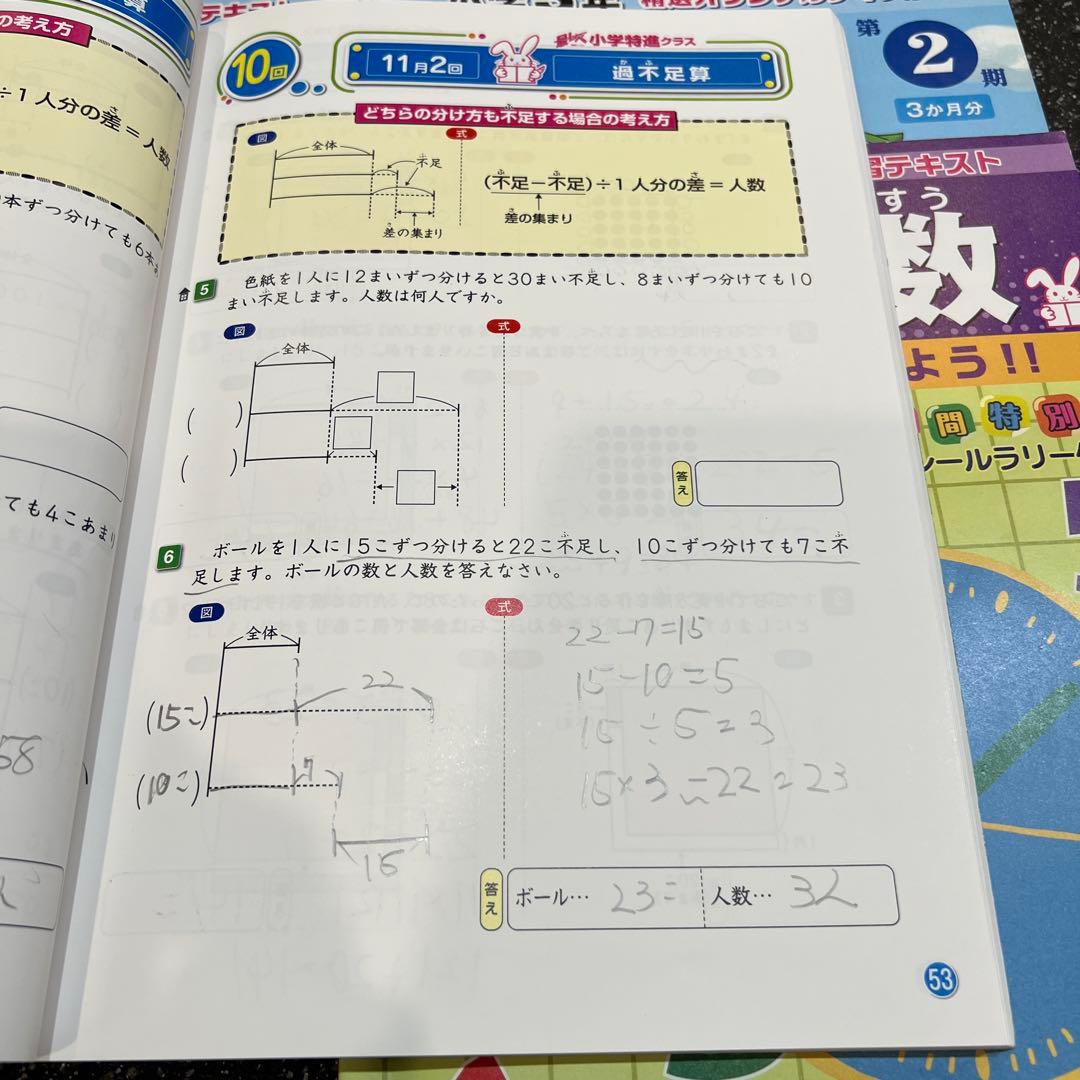 の考え方
÷1人分の差＝人数
本ずつ分けても6本
ても4こあまり
58
10回
11月2回
小学特進クラス
過不足算
どちらの分け方も不足する場合の考え方
図
全体
不足
差の集まり
式
(不足－不足)÷1人分の差＝人数
差の集まり
5 色紙を1人に12まいずつ分けると30まい不足し、8まいずつ分けても10
まい不足します。人数は何人ですか。
図
全体
( )
( )
式
答え
6 ボールを1人に15こずつ分けると22こ不足し、10こずつ分けても7こ不
足します。ボールの数と人数を答えなさい。
図
全体
(15こ)
22
(10こ)
7
15
式
22－7＝15
15－10＝5
15÷5＝3
15×3－22＝23
答え
ボール… 23こ
人数… 3人
53
第2期
3か月分
習テキスト
すう
数
よう!!
間特別
シールラリー